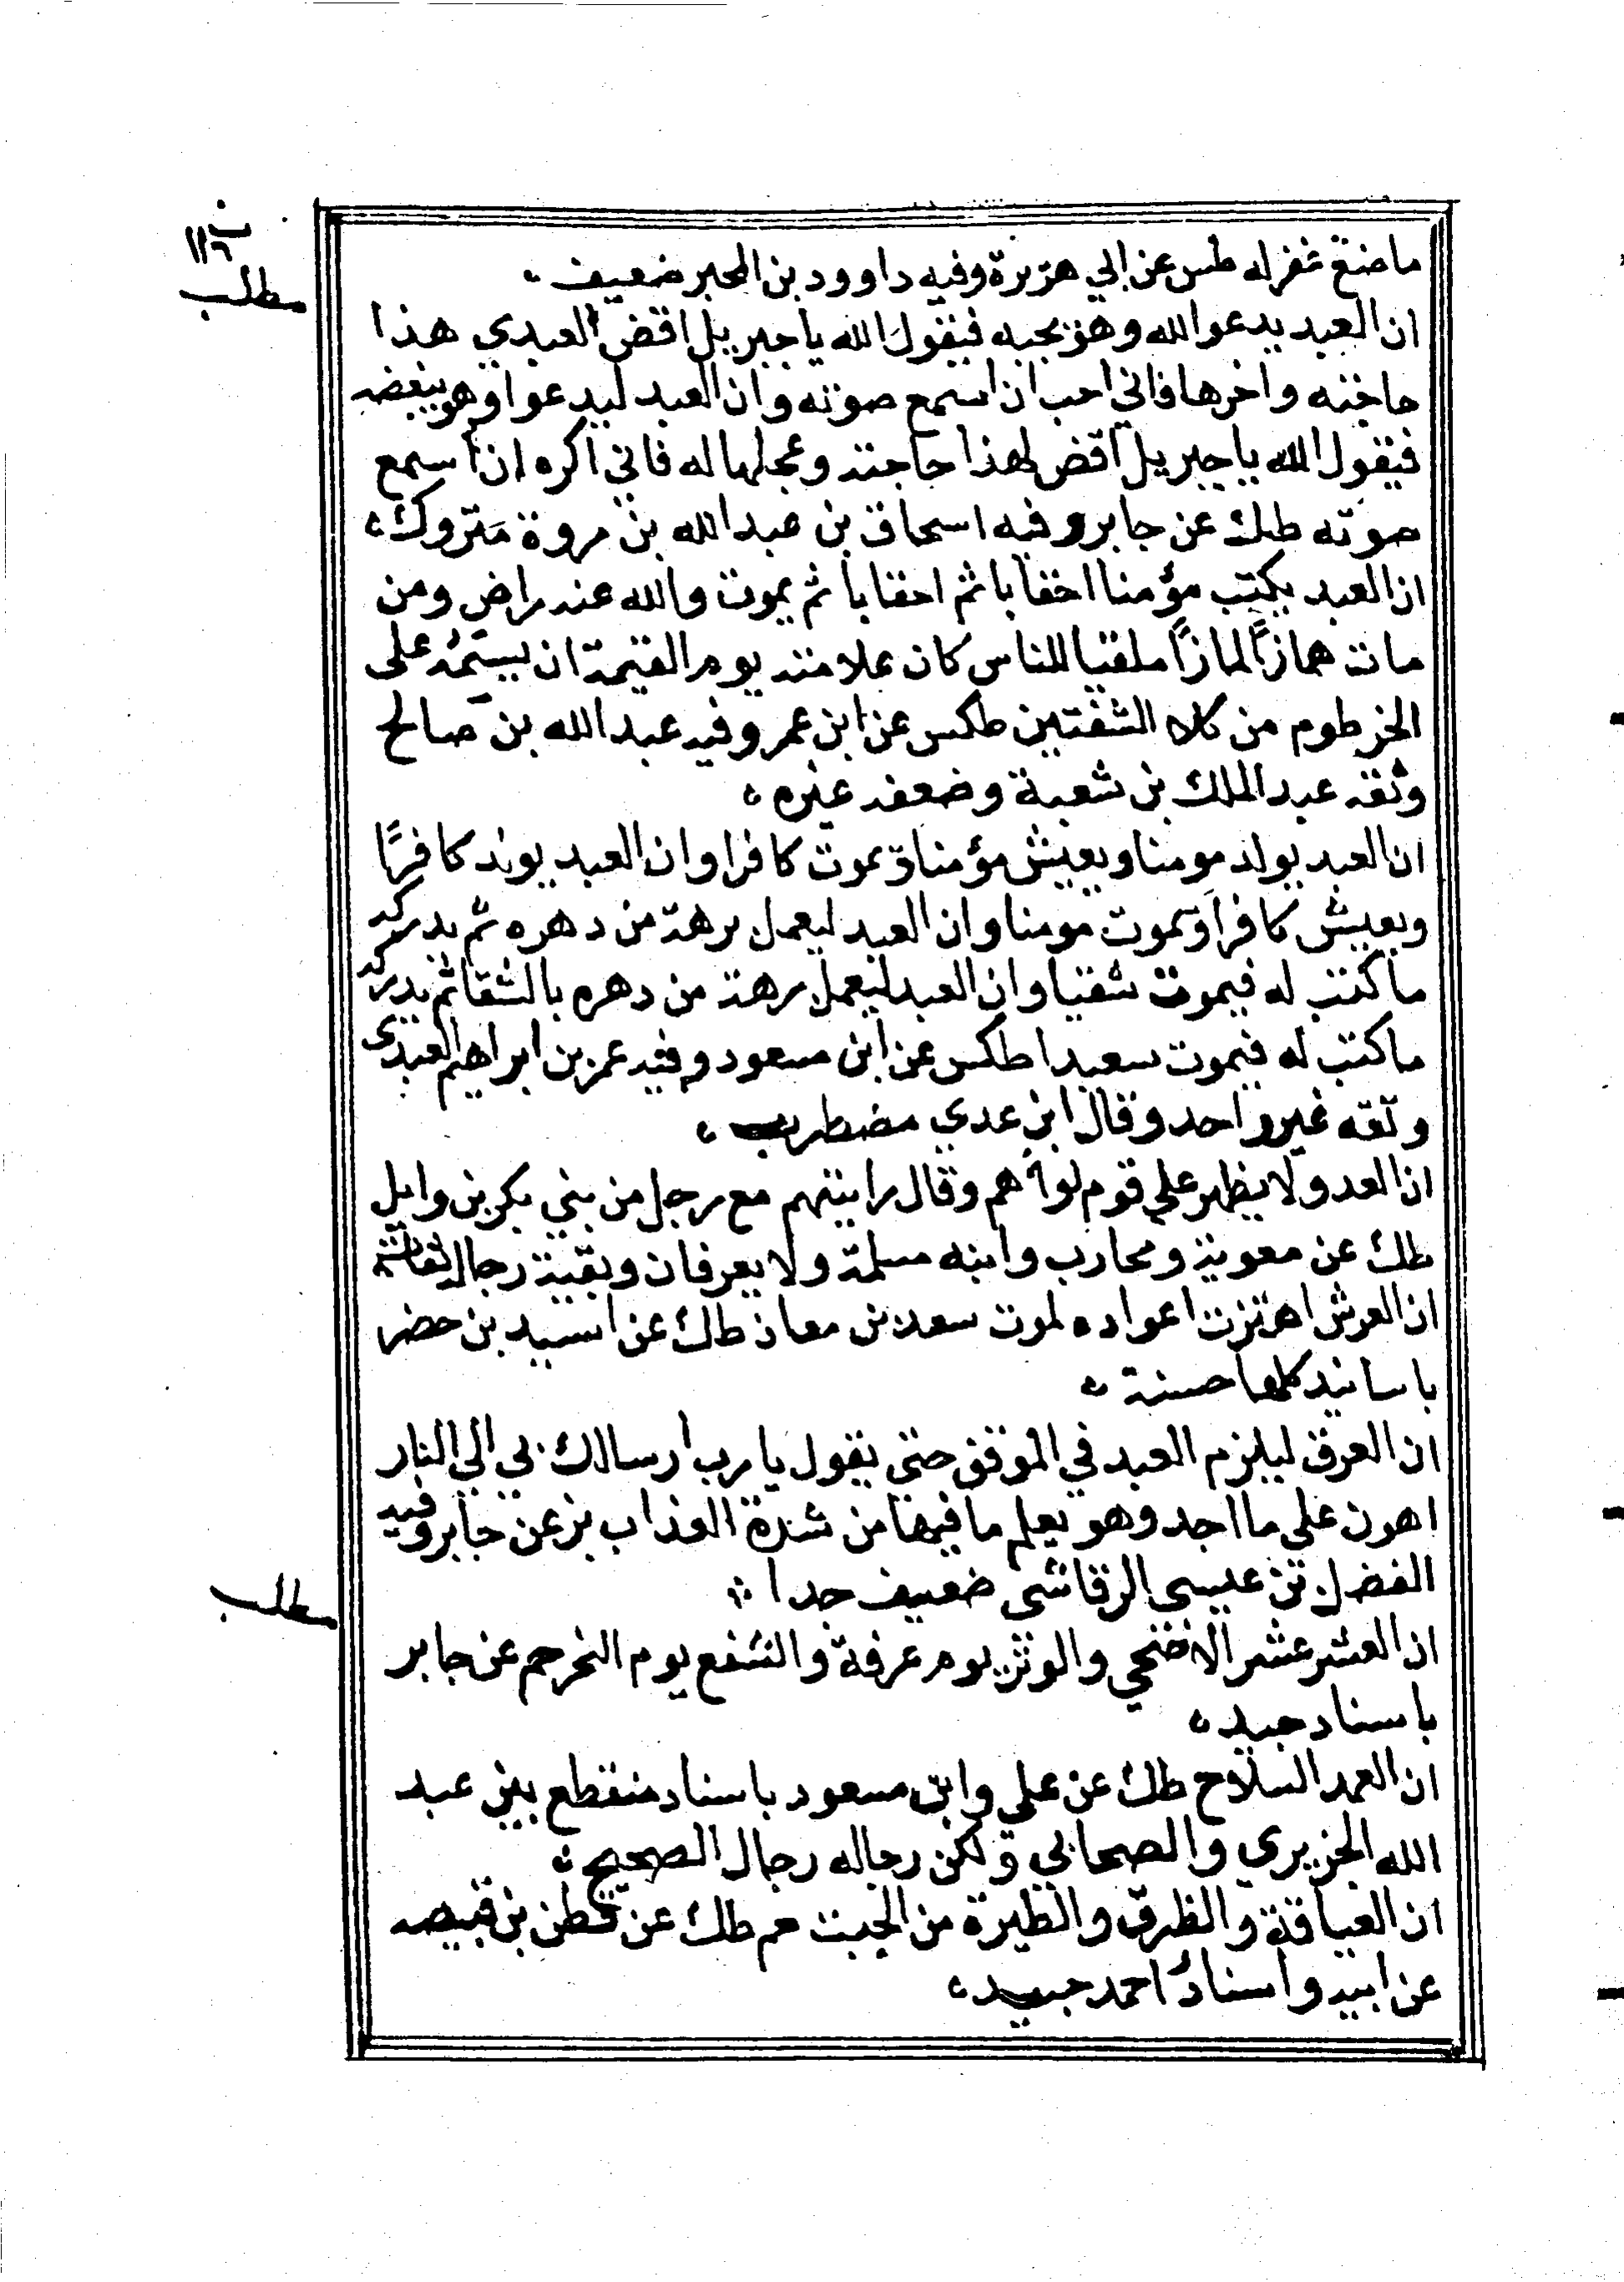 ب
١١٦
مطلب
ما صنع غفر له طس عن ابي هريرة وفيه داوود بن المحبر ضعيف
ان العبد يدعوا الله وهو يحبه فيقول الله يا جبريل اقض لعبدي هذا
حاجته واخرها فاني احب ان اسمع صوته وان العبد ليدعوا وهو يبغضه
فيقول الله يا جبريل اقض لهذا حاجته وعجلها له فاني اكره ان اسمع
صوته طك عن جابر وفيه اسحاق بن عبد الله بن مروة متروك
ان العبد يكتب مؤمنا احقابا ثم احقابا ثم يموت والله عنه راض ومن
مات همازاً لمازاً ملقبا للناس كان علامته يوم القيمة ان يسمه على
الخرطوم من كلا الشفتين طكس عن ابن عمر وفيه عبد الله بن صالح
وثقه عبد الملك بن شعبة وضعفه غيره
ان العبد يولد مومنا ويعيش مؤمنا ويموت كافرا وان العبد يولد كافرًا
ويعيش كافرا ويموت مومنا وان العبد ليعمل برهة من دهره ثم يدركه
ما كتب له فيموت شقيا وان العبد ليعمل برهة من دهره بالشقا ثم يدركه
ما كتب له فيموت سعيدا طكس عن ابن مسعود وفيه عمر بن ابراهيم العبدي
وثقه غير واحد وقال ابن عدي مضطرب
ان العدو لا يظهر على قوم لواهم وقال رايتهم مع رجل من بني بكر بن وايل
طك عن معوية ومحارب وابنه مسلمة ولا يعرفان وبقية رجاله ثقات
ان العرش اهتزت اعواده لموت سعد بن معاذ طك عن اسيد بن حضر
باسانيد كلها حسنة
ان العرق ليلزم العبد في الموقف حتى يقول يا رب ارسالك بي الي النار
اهون على ما اجد وهو يعلم ما فيها من شدة العذاب بز عن جابر وفيه
الفضل بن عيسى الرقاشي ضعيف جدا
مطلب
ان العشر عشر الاضحي والوتر يوم عرفة والشفع يوم النحر حم عن جابر
باسناد جيد
ان العمد السلاح طك عن علي وابن مسعود باسناد منقطع بين عبد
الله الجزيري والصحابي ولكن رجاله رجال الصحيح
ان العيافة والظرق والطيرة من الجبت حم طك عن قطن بن قبيصه
عن ابيه واسناد احمد جيد